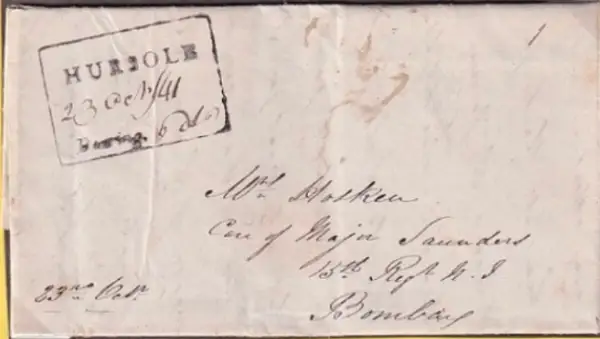 HURSOLE
23 Octr/41
Bearing
1
Mrs Hosken
Care of Major Saunders
15th Regt N. I
Bombay
23rd Octr